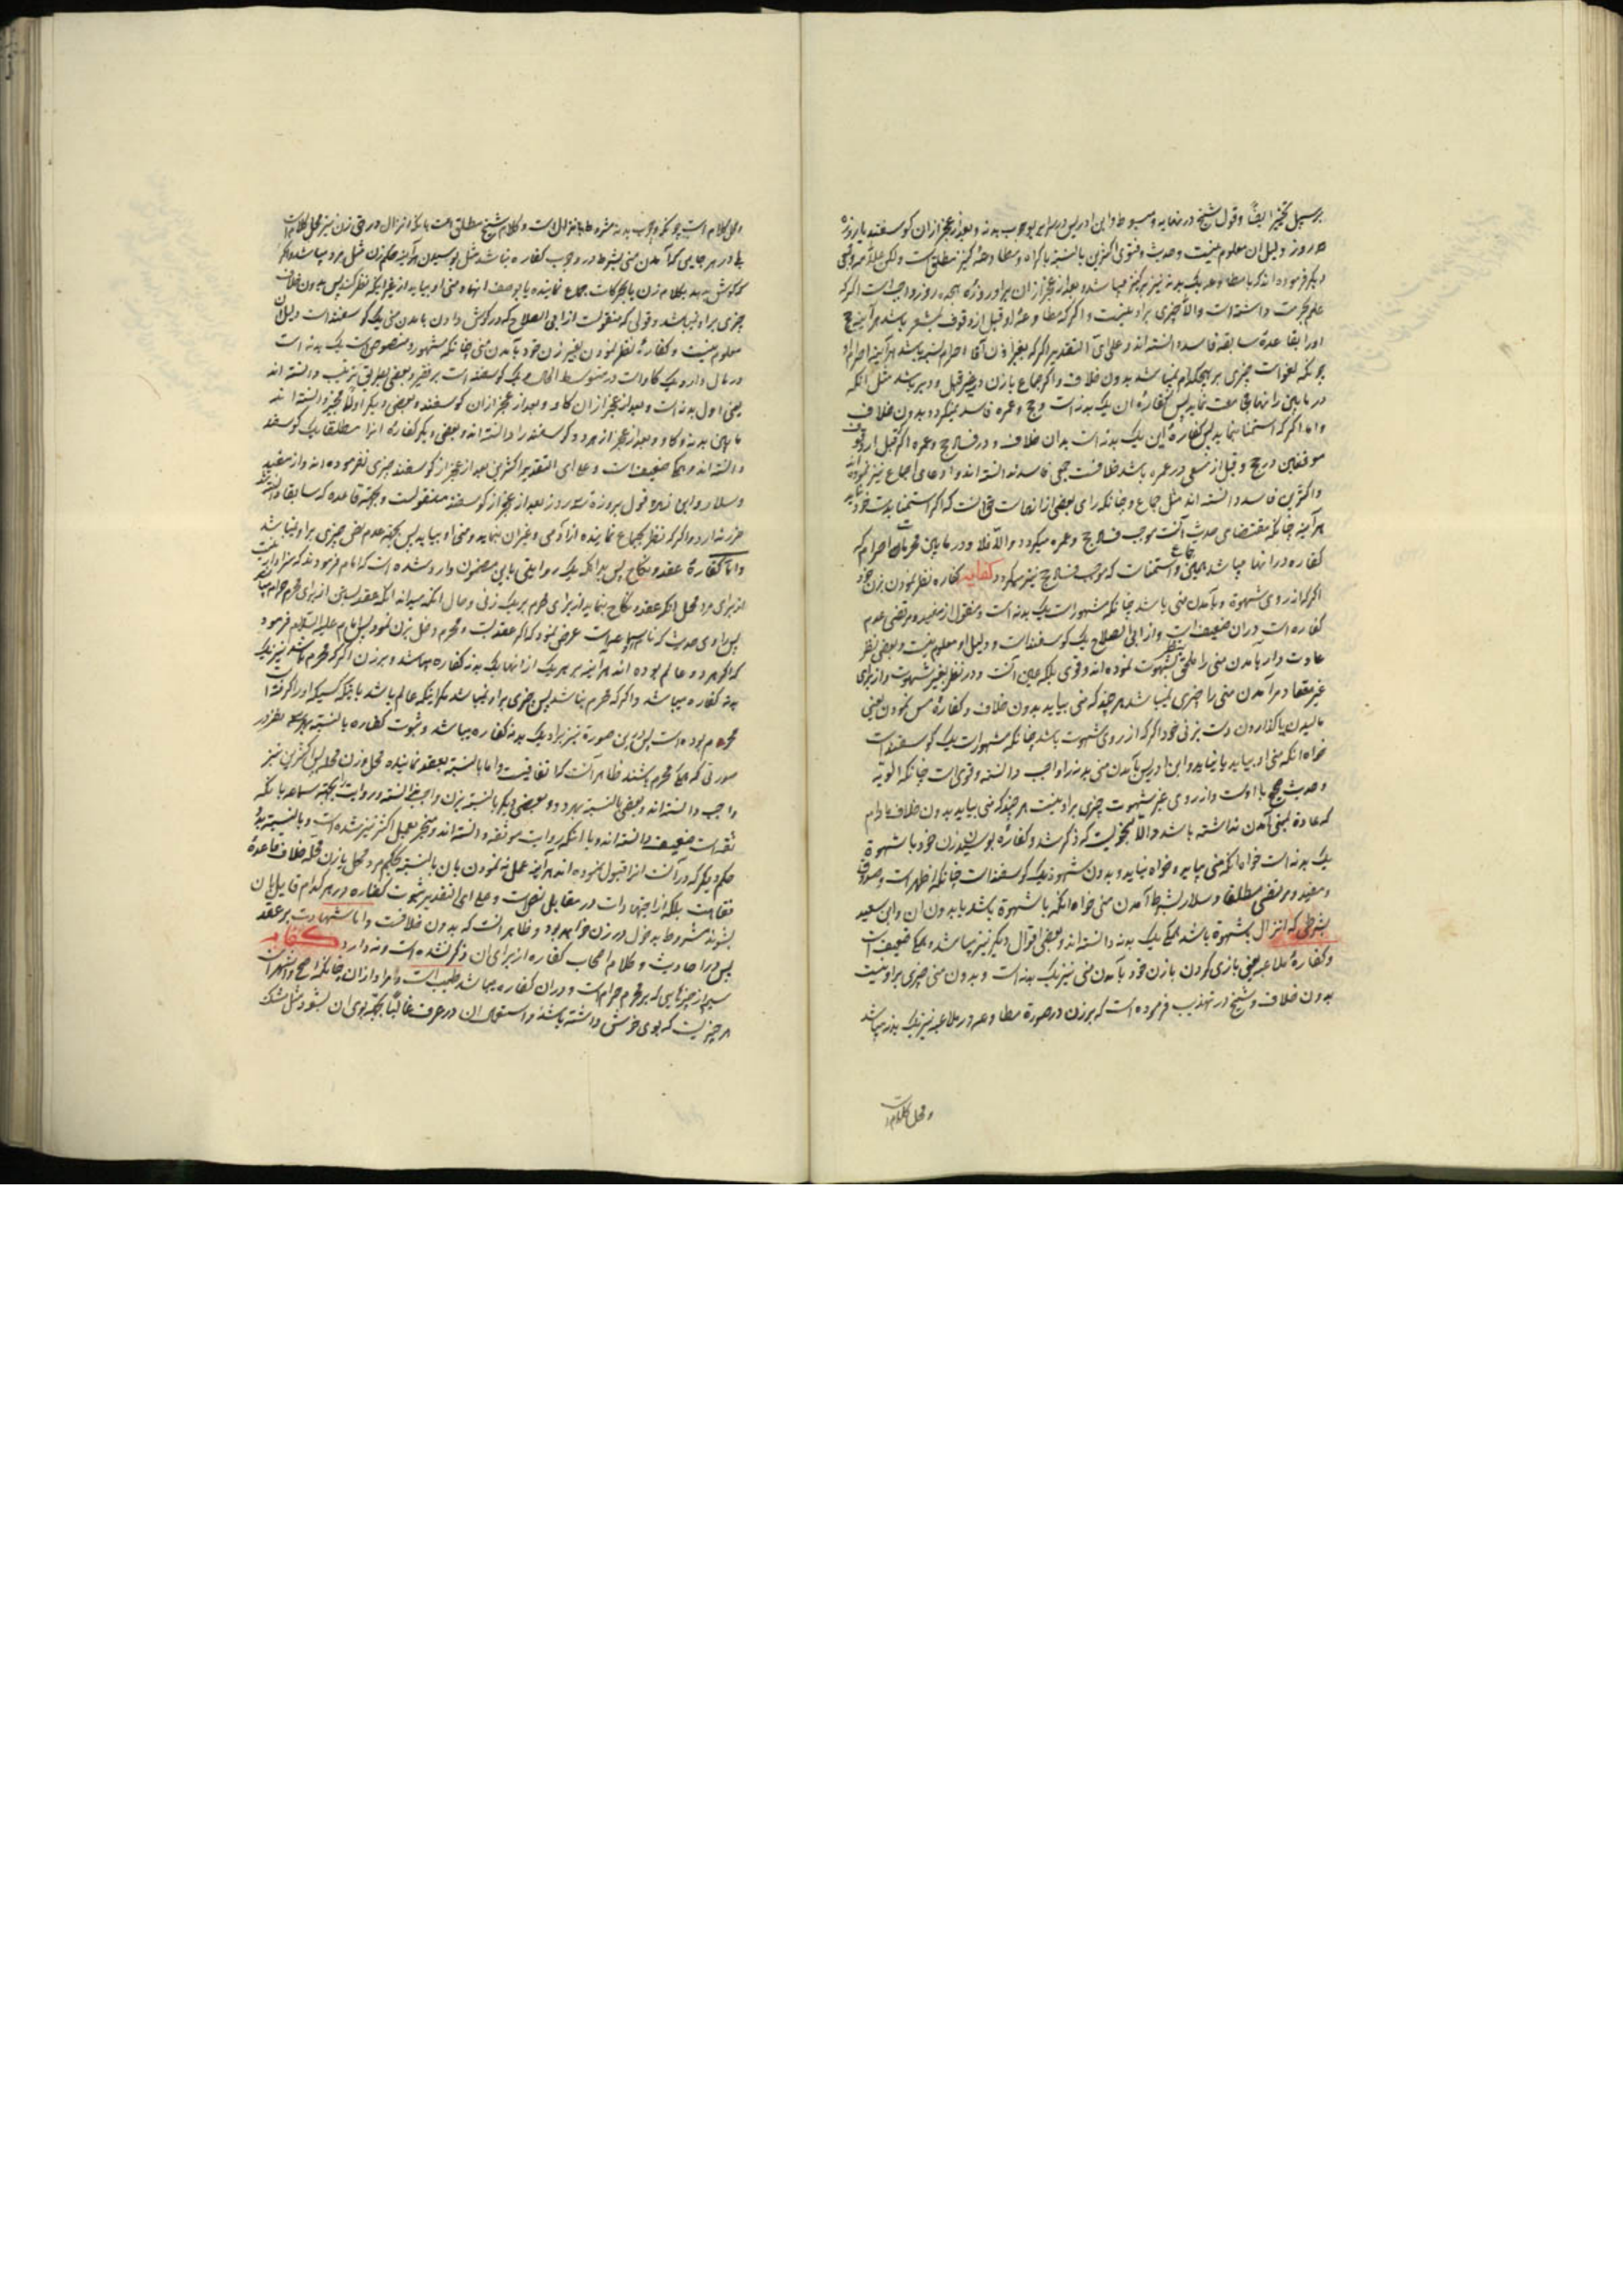 برسبیل تخییر ایضا و قول شیخ در نهایه و مبسوط و ابن ادریس در سرایر بوجوب بدنه و بعد از عجز از ان کوسفند یا روزه
سه روز دلیل ان معلوم نیست و حدیث و فتوی اکثرین بالنسبة باکراه و مطاوعهٔ کنیز مطلق است و لکن علامه و بعضی
دیکر فرموده اند که با مطاوعه یک بدنه نیز بر کنیز میباشد و بعد از عجز از ان بر او روزه هجده روز واجب است اکر که
علم بحرمت داشته است و الا چیزی بر او نیست و اکر که مطاوعهٔ او قبل از وقوف بمشعر باشد هر آینه حج
او را بقاعدهٔ سابقه فاسد دانسته اند و علی ای التقدیر اکر که بغیر اذن آقا احرام بسته باشد هر آینه احرام او
چونکه لغو است چیزی بر هیچکدام نمیباشد بدون خلاف و اکر جماع با زن در غیر قبل و دبر باشد مثل انکه
در مابین رانها مجامعت نماید پس کفارهٔ ان یک بدنه است و حج و عمره فاسد نمیکردد بدون خلاف
و اما اکر که استمنا نماید پس کفارهٔ این یک بدنه است بدان خلاف و در فساد حج و عمره اکر قبل از وقوف
موقفین در حج و قبل از سعی در عمره باشد خلافست جمعی فاسد ندانسته اند و ادعای اجماع نیز نموده اند
و اکثرین فاسد دانسته اند مثل جماع و چنانکه رای بعضی از انهاست حق انست که اکر استمنا بدست خود نماید
هر آینه چنانکه مقتضای حدیث آنست موجب فساد حج و عمره میکردد و الا فلا و در مابین محرمات احرام که
کفاره در انها میباشد همین جماع و استمنات که موجب فساد حج نیز میکردد کفایه کفاره نظر نمودن بزن خود
اکر که از روی شهوة و با آمدن منی باشد چنانکه مشهور است یک بدنه است و منقول از مفید و مرتضی عدم
کفاره است در ان ضعیف است و از ابی الصلاح یک کوسفند است و دلیل او معلوم نیست و بعضی نظر
عادت دار بآمدن منی را ملحق بنظر بشهوت نموده اند و قوی بلکه عین آنست و در نظر بغیر شهوت و از برای
غیر معتاد در آمدن منی را چیزی نمیباشد هر چند که منی بیاید بدون خلاف و کفارهٔ مس نمودن یعنی
مالیدن یا کذاردن دست بزنی خود اکر که از روی شهوت باشد چنانکه مشهور است یک کوسفند است
خواه انکه منی او بیاید یا نیاید و ابن ادریس با آمدن منی بدنه را واجب دانسته و قوی است چنانکه
و حدیث صحیح با اوست و از روی غیر شهوت چیزی بر او نیست هر چند که منی بیاید بدون خلاف مادام
که عادة بمنی آمدن نداشته باشد و الا بنحویست که ذکر شد و کفارهٔ بوسیدن زن خود با شهوة
یک بدنه است خواه انکه منی بیاید و خواه نیاید و بدون شهوة یک کوسفند است چنانکه اظهر است و صدوق
و مفید و مرتضی مطلقا و سلار بشرط آمدن منی خواه انکه با شهوة باشد یا بدون ان و ابن سعید
بشرطی که انزال بشهوة باشد همکی یک بدنه دانسته اند و بعضی اقوال دیکر نیز میباشد و همکی ضعیف است
و کفارهٔ ملاعبه یعنی بازی کردن با زن خود با آمدن منی نیز یک بدنه است و بدون منی چیزی بر او نیست
بدون خلاف و شیخ در تهذیب فرموده است که بر زن در صورة مطاوعه در ملاعبه نیز یک بدنه میباشد
و محل کلام است
و محل کلام است چونکه وجوب بدنه مشروط بانزال است و کلام شیخ مطلق است با انکه انزال در حق زن نیز محل کلام است
بلی در هر جایی که آمدن منی بشرط در وجوب کفاره نباشد مثل بوسیدن هر آینه حکم زن مثل مرد میباشد و اکر
که کوش بدهد بکلام زن یا بحرکات جماع نماینده یا بوصف انها و منی او بیاید از غیر اینکه نظر کند پس بدون خلاف
چیزی بر او نمیباشد و قولی که منقولست از ابی الصلاح که در کوش دادن با آمدن منی یک کوسفند است دلیل ان
معلوم نیست و کفارهٔ نظر نمودن بغیر زن خود با آمدن منی چنانکه مشهور و منصوص است یک بدنه است
در مال دار و یک کاو است در متوسط الحال و یک کوسفند است بر فقیر و بعضی بطریق ترتیب دانسته اند
یعنی اول بدنه است و بعد از عجز از ان کاو و بعد از عجز از ان کوسفند و بعضی دیکر اولا مخیر دانسته اند
مابین بدنه و کاو و بعد از عجز از هر دو کوسفند را دانسته اند و بعضی دیکر کفارهٔ انرا مطلقا یک کوسفند
دانسته اند و همکی ضعیف است و علی ای التقدیر اکثرین بعد از عجز از کوسفند چیزی نفرموده اند و از مفید
و سلار و ابن زهره قول بروزه سه روز بعد از عجز از کوسفند منقولست و بجهة قاعده که سابقا دانسته شد
ضرر ندارد و اکر که نظر بجماع نماینده از آدمی و غیر ان نماید و منی او بیاید پس بجهة عدم نص چیزی بر او نمیباشد
و اما کفارهٔ عقد و نکاح پس بدانکه یک روایتی باین مضمون وارد شده است که امام فرمودند که سزاوار نیست
از برای مرد محل انکه عقد و نکاح بنماید از برای محرم بر یک زنی و حال انکه میداند انکه عقد بستن از برای محرم حرام میباشد
پس راوی حدیث که نامش سماعه است عرض نمود که اکر عقد بست و محرم دخل بزن نمود پس امام علیه السلام فرمود
که اکر هر دو عالم بوده اند هر آینه بر هر یک از انها یک بدنه کفاره میباشد و بر زن اکر که محرم باشد نیز یک
بدنه کفاره میباشد و اکر که محرم نباشد پس چیزی بر او نمیباشد مکر اینکه عالم باشد باینکه کسیکه او را کرفته است
محرم بوده است پس در این صورة نیز بر او یک بدنه کفاره میباشد و ثبوت کفاره بالنسبة بهر سه نفر در
صورتی که همکی محرم باشند ظاهر آنست که اتفاقیست و اما بالنسبة بعقد نمایندهٔ محل و زن محله پس اکثرین نیز
واجب دانسته اند و بعضی بالنسبة بهر دو و بعضی دیکر بالنسبة بزن واجب ندانسته و روایت را بجهة سماعه با انکه
ثقه است ضعیف دانسته اند و با انکه روایت موثقه دانسته اند و منجبر بعمل اکثر نیز شده است و بالنسبة به
حکم دیکر که در آنست انرا قبول نموده اند هر آینه عمل نه نمودن بان بالنسبة بحکم مرد محل یا زن محله خلاف قاعدهٔ
فقاهت بلکه از اجتهادات در مقابل نص است و علی ای التقدیر ثبوت کفاره در هر کدام قایل بان
بشوند مشروط بدخول در زن خواهد بود و ظاهر انست که بدون خلافست و اما شهادت بر عقد
پس در احادیث و کلام اصحاب کفاره از برای ان ذکر نشده است و ندارد کفایه
سیم از چیزهایی که بر محرم حرام است و در ان کفاره میباشد طیب است و مراد از ان چنانکه اصح و اشهر است
هر چیزیست که بوی خوش داشته باشد و استعمال ان در عرف غالبا بجهة بوی ان بشود مثل مشک